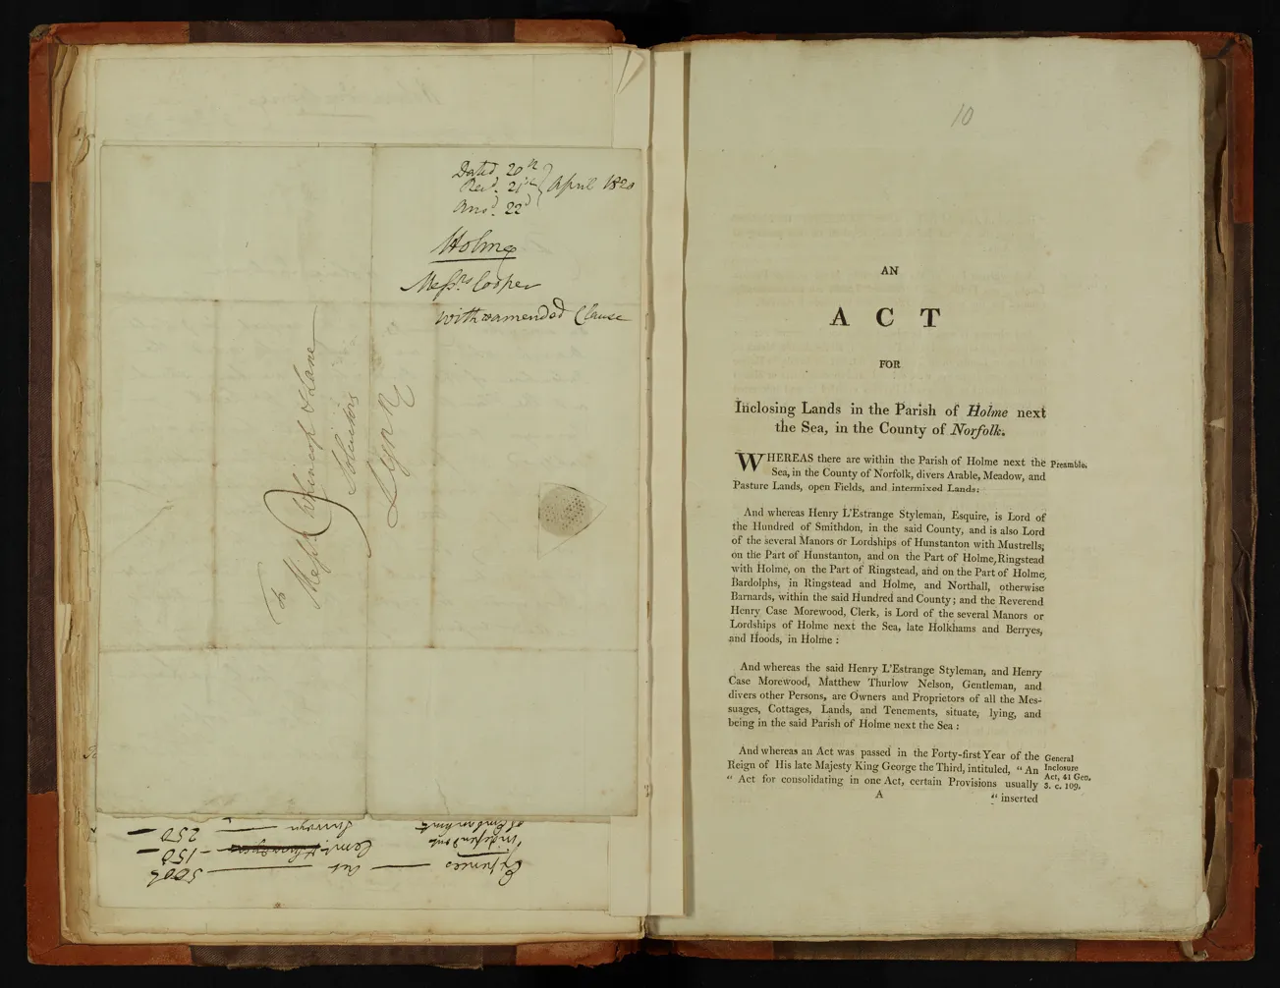 Dated 20th
Recd. 21st } April 1820
Ansd. 22d
Holme
Messrs Cooper
with amended Clause
To
Messrs Whincop & Lane
Solicitors
Lynn
Expences
independent
of Embankmt
Act — 500£
Comrs — 150 —
Survey — 250 —
10
AN
ACT
FOR
Inclosing Lands in the Parish of Holme next
the Sea, in the County of Norfolk.
WHEREAS there are within the Parish of Holme next the
Preamble.
Sea, in the County of Norfolk, divers Arable, Meadow, and
Pasture Lands, open Fields, and intermixed Lands:
And whereas Henry L'Estrange Styleman, Esquire, is Lord of
the Hundred of Smithdon, in the said County, and is also Lord
of the several Manors or Lordships of Hunstanton with Mustrells,
on the Part of Hunstanton, and on the Part of Holme, Ringstead
with Holme, on the Part of Ringstead, and on the Part of Holme,
Bardolphs, in Ringstead and Holme, and Northall, otherwise
Barnards, within the said Hundred and County; and the Reverend
Henry Case Morewood, Clerk, is Lord of the several Manors or
Lordships of Holme next the Sea, late Holkhams and Berryes,
and Hoods, in Holme:
And whereas the said Henry L'Estrange Styleman, and Henry
Case Morewood, Matthew Thurlow Nelson, Gentleman, and
divers other Persons, are Owners and Proprietors of all the Mes-
suages, Cottages, Lands, and Tenements, situate, lying, and
being in the said Parish of Holme next the Sea:
And whereas an Act was passed in the Forty-first Year of the
Reign of His late Majesty King George the Third, intituled, "An
" Act for consolidating in one Act, certain Provisions usually
General
Inclosure
Act, 41 Geo.
3. c. 109.
A
" inserted